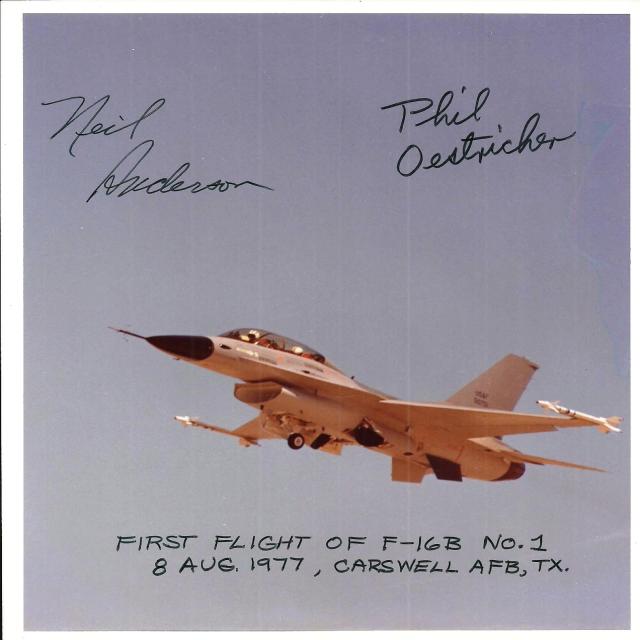 Neil
Anderson
Phil
Oestricher
USAF
FIRST FLIGHT OF F-16B NO. 1
8 AUG. 1977, CARSWELL AFB, TX.